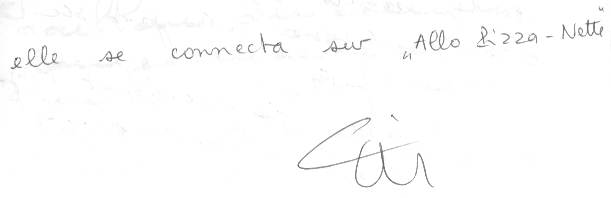 elle se connecta sur „Allo Pizza-Nette“